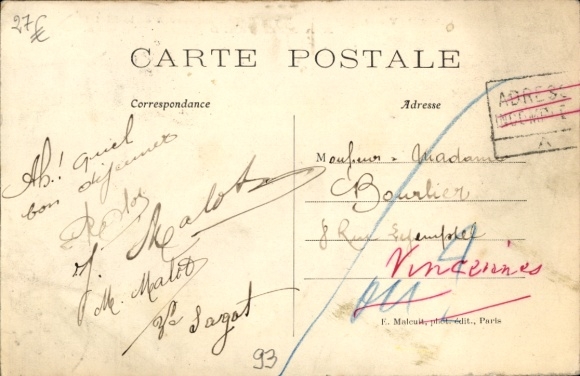 27 €
CARTE POSTALE
Correspondance
Adresse
ADRESS
INCOMPLÈ
Ah! quel
bon déjeuner
J. Malot
M. Malot
Sagot
93
Monsieur & Madame
Bourlier
8 Rue
Vincennes
ou
E. Malcuit, phot. édit., Paris